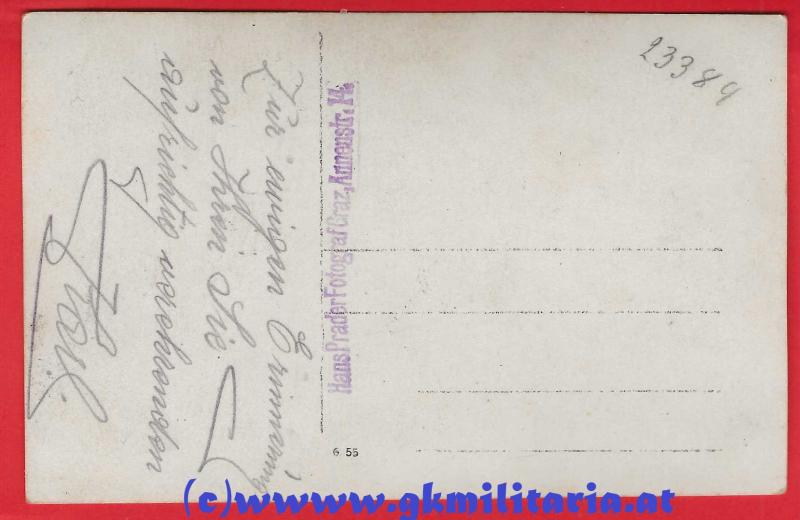 Zur ewigen Erinnerung
von Ihren Sie
aufrichtig verehrenden
23384
Hans Prader Fotograf Graz, Annenstr. 14.
G 55
(c)www.gkmilitaria.at